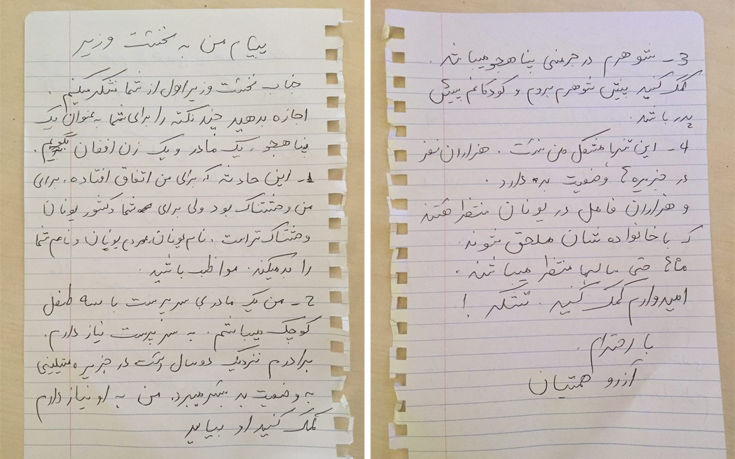 پیام من به نخست وزیر
جناب نخست وزیر اول از شما تشکر میکنیم.
اجازه بدهید چند نکته را برای شما به عنوان یک
پناهجو، یک مادر و یک زن افغان بگویم.
1- این حادثه که برای من اتفاق افتاده، برای
من وحشتناک بود ولی برای شما کشور یونان
وحشتناک تر است، نام یونان، مردم یونان و نام شما
را بد میکند. مواظب باشید.
2- من یک مادر بی سرپرست با سه طفل
کوچک میباشم. به سرپرست نیاز دارم.
برادرم نزدیک دوسال است در جزیره میتیلینی
به وضعیت بد بسر میبرد. من به او نیاز دارم
کمک کنید او بیاید
3- شوهرم در جرمنی پناهجو میباشد.
کمک کنید پیش شوهرم بروم و کودکانم پیش
پدر باشد.
4- این تنها مشکل من نیست. هزاران نفر
در جزیره ها وضعیت بد دارد.
و هزاران فامیل در یونان منتظر هستند
که با خانواده شان ملحق شوند
ماه ها حتی سالها منتظر میباشند.
امیدوارم کمک کنید. تشکر!
با احترام.
آرزو همتیان